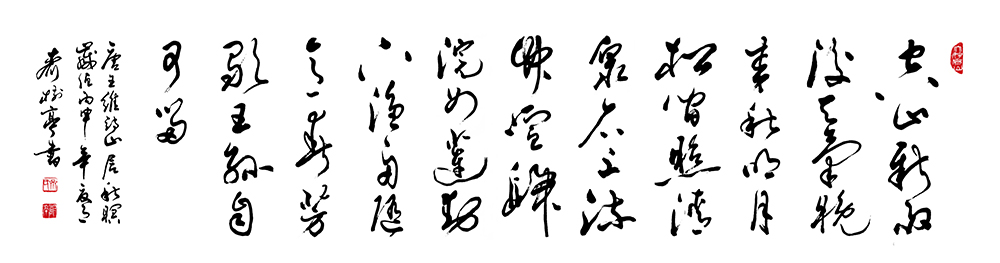 空山新雨
後天氣晚
來秋明月
松間照清
泉石上流
竹喧歸
浣女蓮動
下漁舟隨
意春芳
歇王孫自
可留
唐王維詩山居秋暝
歲值丙申年夏
樹亭書